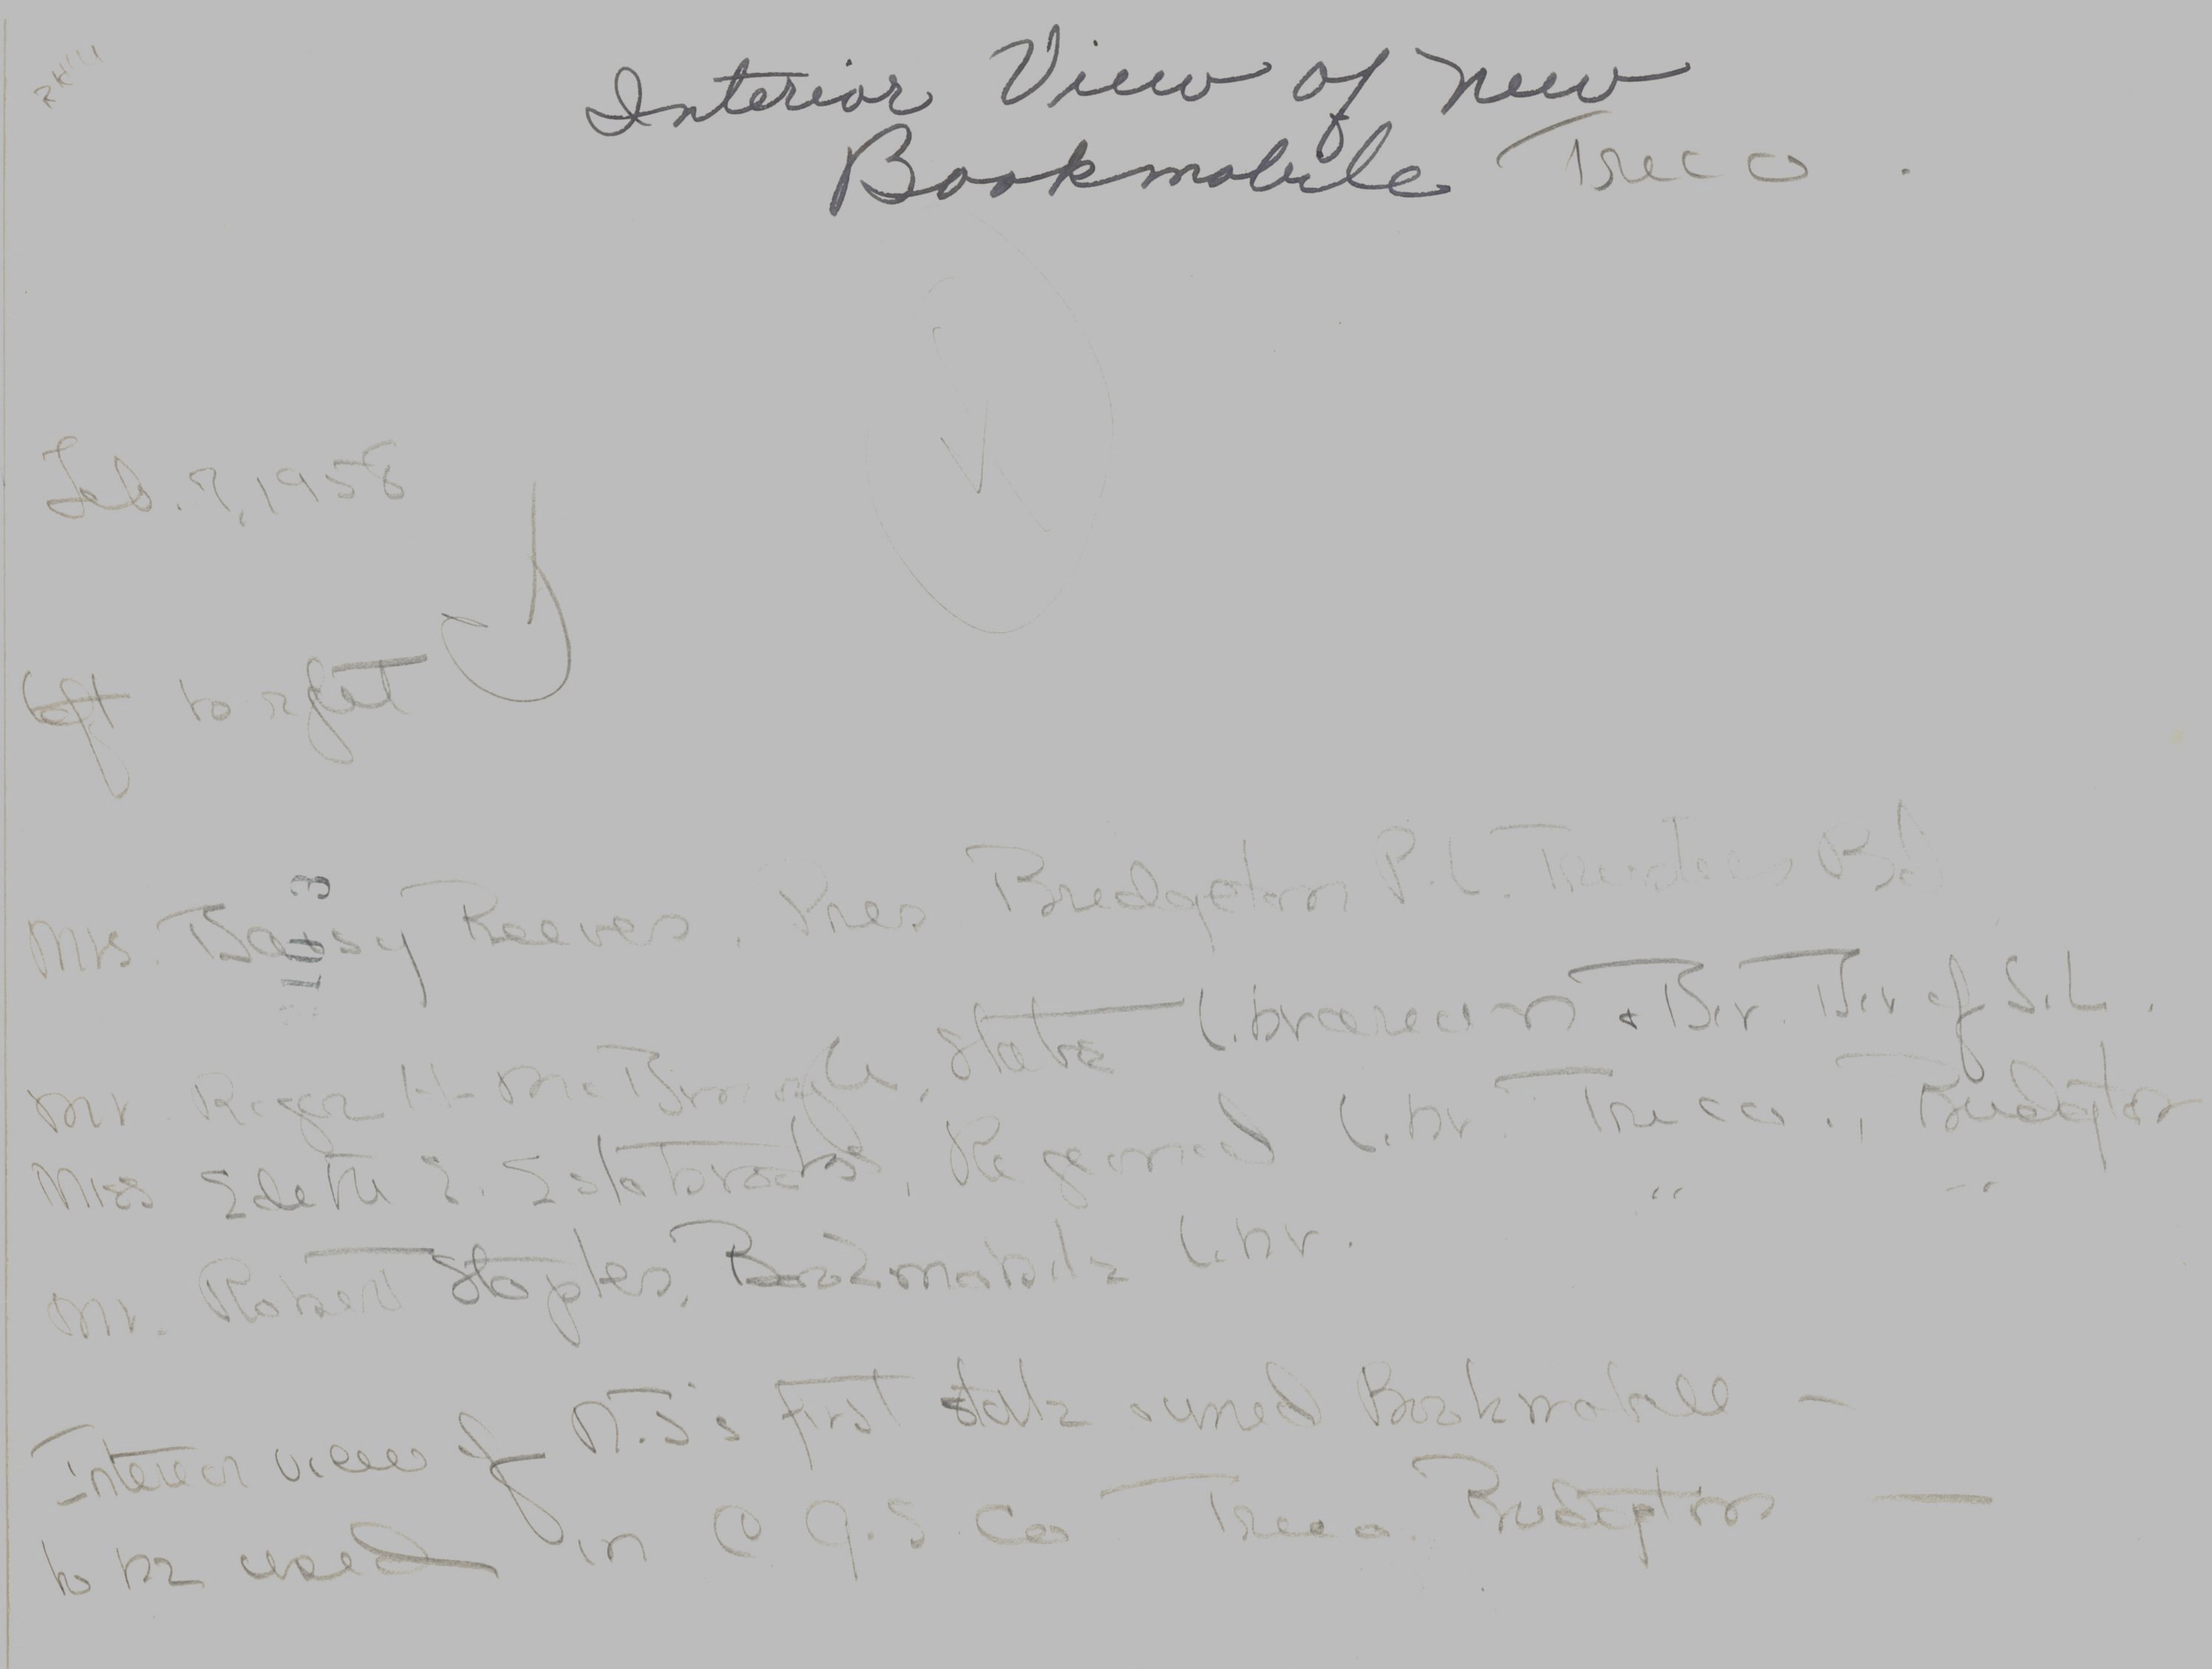 Interior View of New
Bookmobile Tri Co.
Feb. 7, 1958
left to right
Mrs. Daisy Reeves, Pres Bridgeton P.L. Trustees Bd
Mr. Roger H. McDonough, State Librarian & Dir. Div of S.L.
Miss Edith L. Estabrooks, Regional Libr. Tri Co., Bridgeton
Mr. Robert Staples, Bookmobile Libr. " "
Interior view of N.J.'s first state owned Bookmobile —
to be used in C G. S Cos Tri Co. Bridgeton —